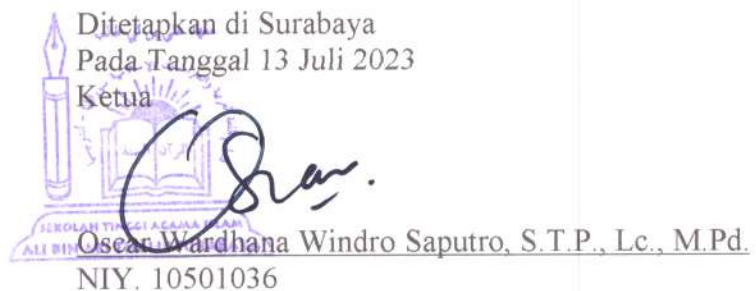 Ditetapkan di Surabaya
Pada Tanggal 13 Juli 2023
Ketua
SEKOLAH TINGGI AGAMA ISLAM
ALI BIN
Oscar Wardhana Windro Saputro, S.T.P., Lc., M.Pd.
NIY. 10501036